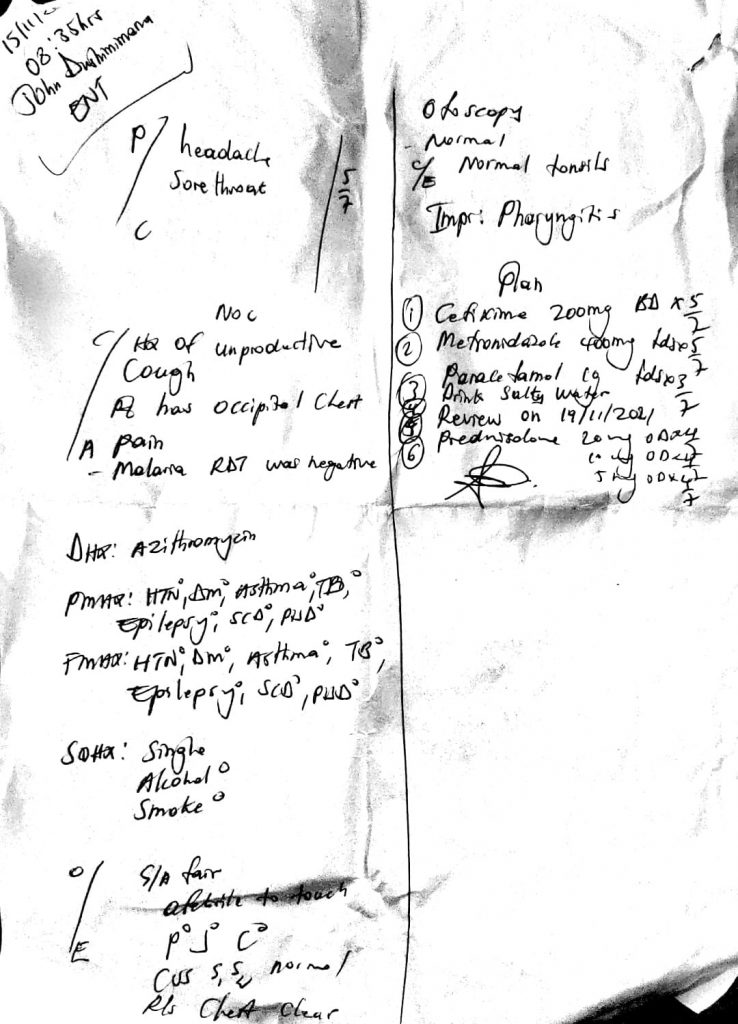 15/11/2
08:35hrs
John Dushimimana
ENT
P/C
headache
Sore throat
5/7
Noc
C/A
Hx of unproductive
Cough
Pt has occipital Chest
pain
- Malaria RDT was negative
DHx: Azithromycin
PMHx: HTN°, DM°, Asthma°, TB°,
Epilepsy°, SCD°, PUD°
FMHx: HTN°, DM°, Asthma°, TB°,
Epilepsy°, SCD°, PUD°
SOHx: Single
Alcohol°
Smoke°
O/E
S/A fair
afebrile to touch
P° J° C°
CVS S1 S2 normal
R/s Chest Clear
Otoscopy
- Normal
C/E Normal tonsils
Impr: Pharyngitis
Plan
① Cefixime 200mg BD x 5/7
② Metronidazole 400mg tds x 5/7
③ Paracetamol 1g tds x 3/7
④ Drink Salty water
⑤ Review on 19/11/2021
⑥ Prednisolone 20mg OD x 4/7
10mg OD x 4/7
5mg OD x 4/7